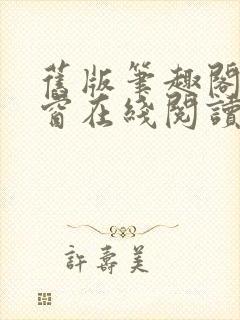 舊版筆趣閣
窗在綫閱讀
許壽美